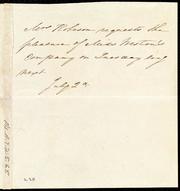 Mrs Robeson requests the
pleasure of Miss Weston's
company on Tuesday eve
next
July 2d